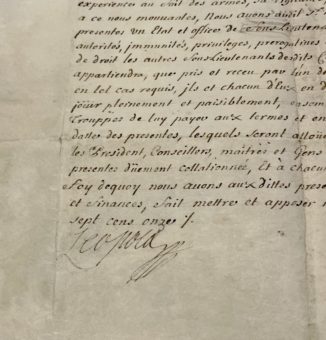 experience au fait des armes, sa vigilance
a ce nous mouuantes, Nous auons audit Sr
presentes vn Etat et office de Sous Lieutenant
autorités, immunités, privileges, prerogatives
de droit les autres Sous Lieutenants desdits
appartiendra, que pris et receu par l'un de
en tel cas requis, ils et chacun d'Eux en d
jouir pleinement et paisiblement, ensem
Trouppes de luy payer aux termes et en
datte des presentes, lesquels seront alloüe
les President, Conseillers, maitres et Gens
presentes düement collationnée, Et à chacun
Foy dequoy nous auons aux dittes prese
et finances, fait mettre et apposer n
sept cens onze ./.
Leopold